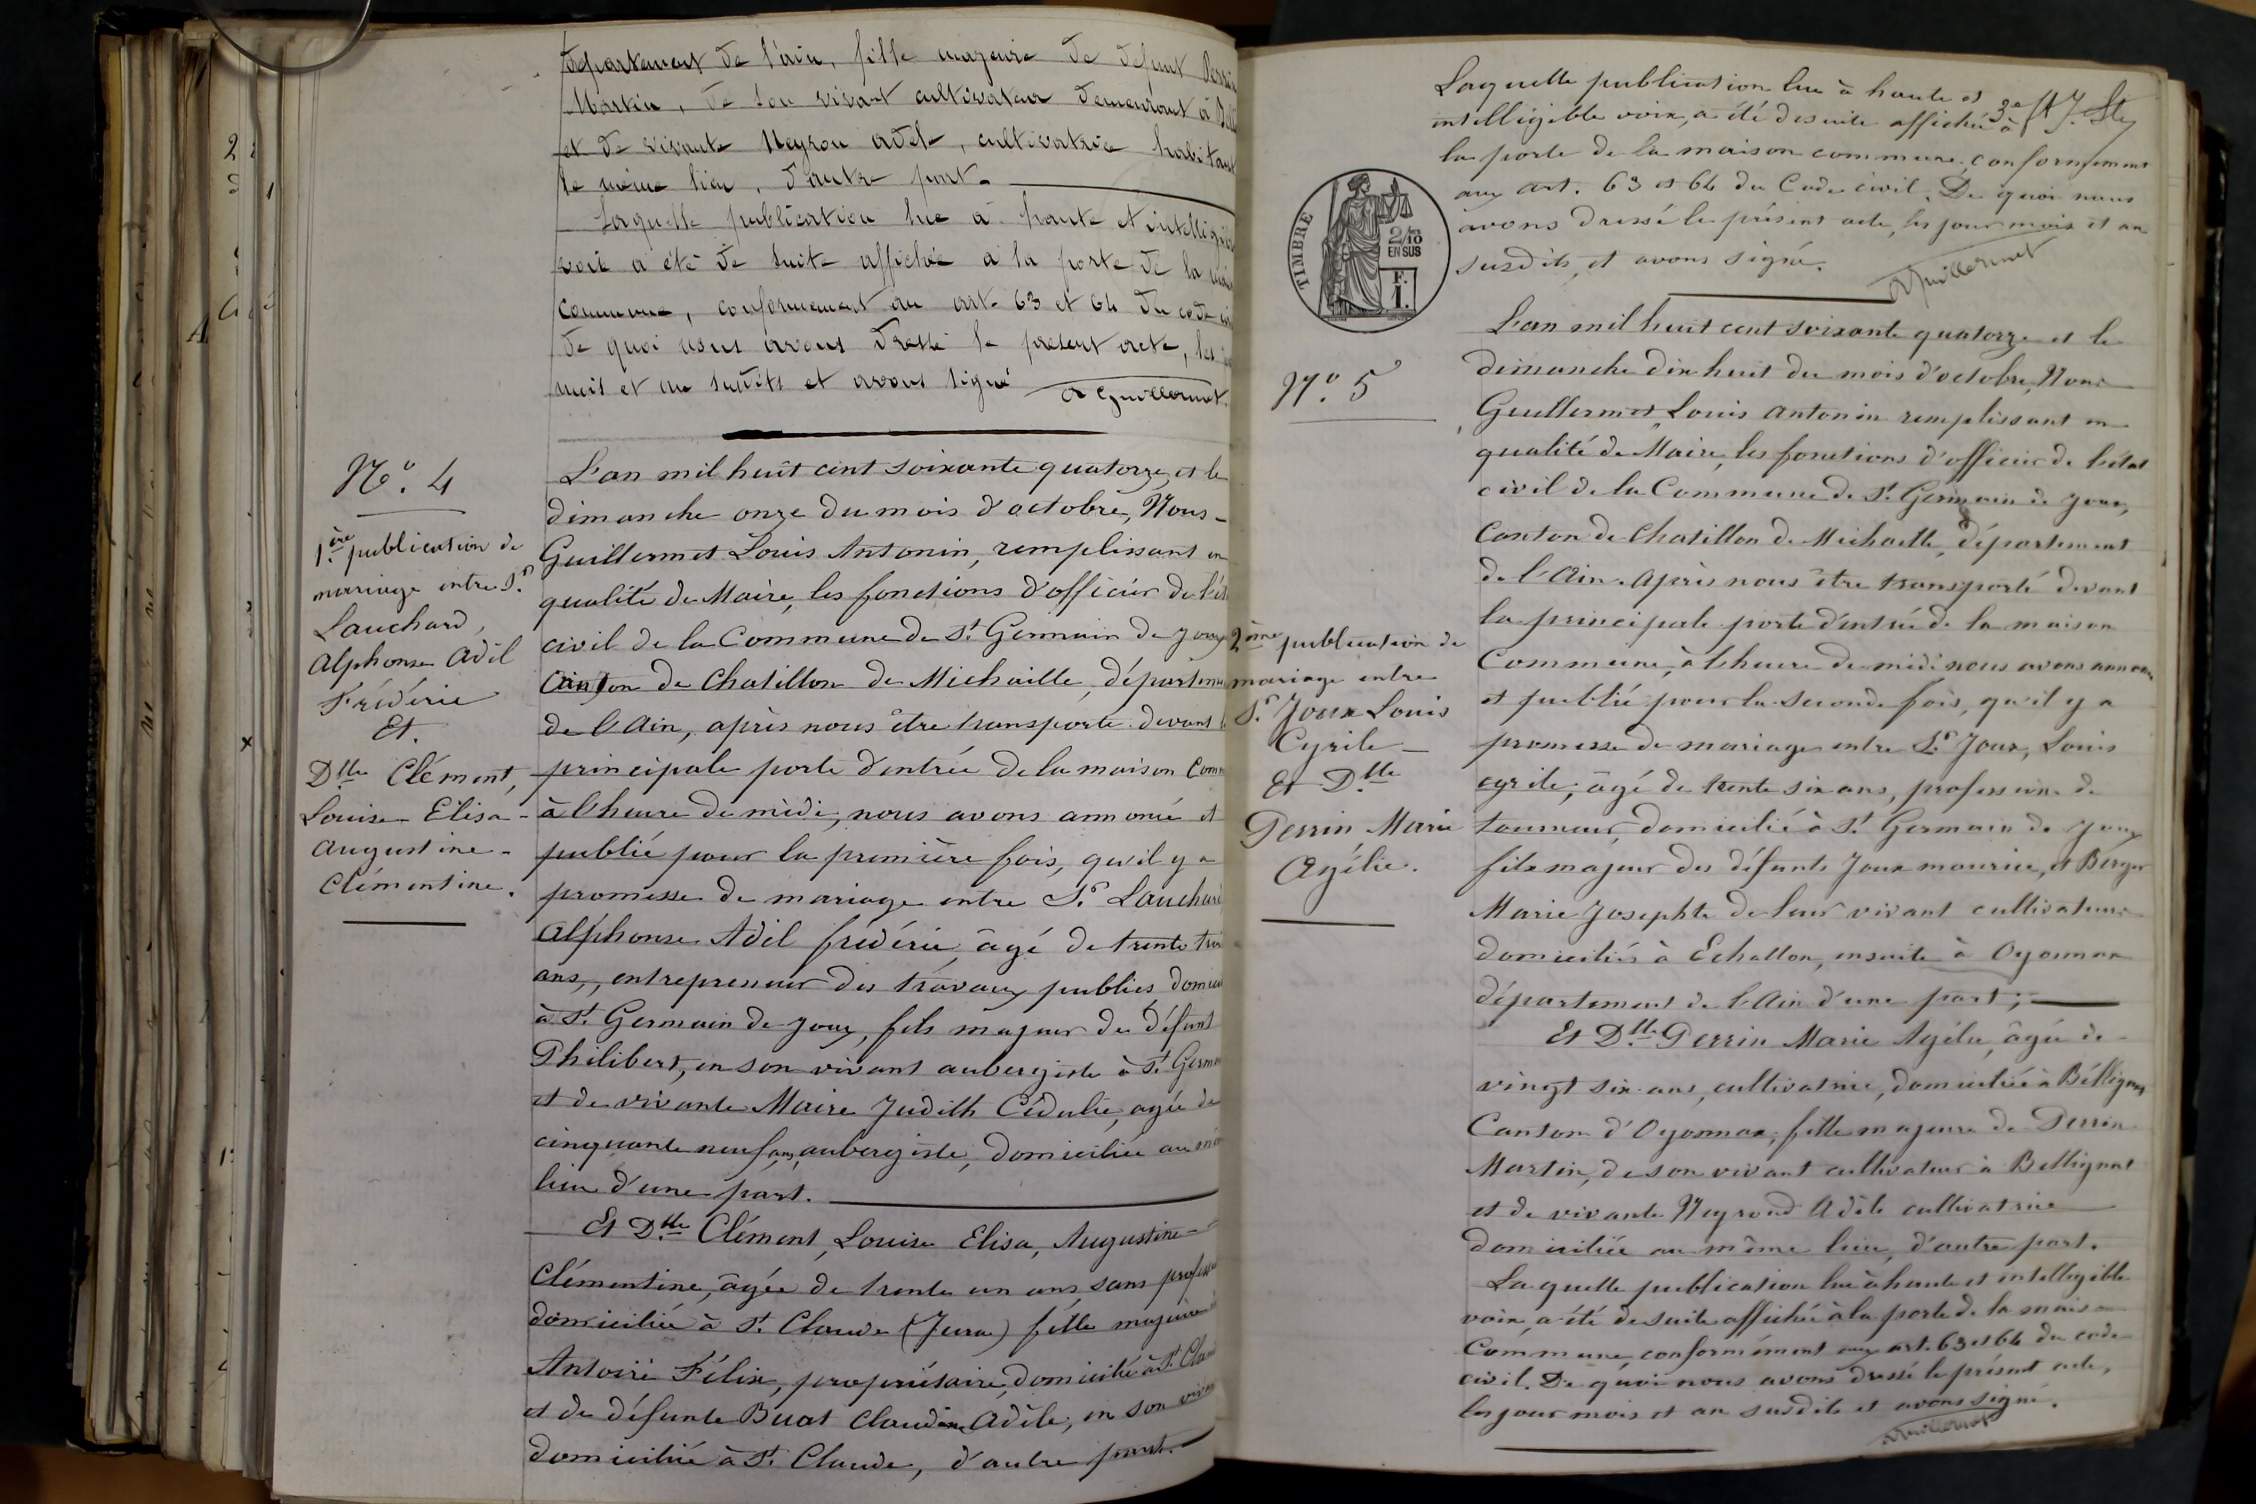 département de l'ain, fille majeure de défunt Perrin
Martin, de son vivant cultivateur demeurant à
et de vivante Neyron adèle, cultivatrice habitant
le même lieu, d'autre part.
Laquelle publication lue à haute et intelligible
voix a été de suite affichée à la porte de la
commune, conformement au art. 63 et 64 du code
de quoi nous avons dressé le présent acte, les
mois et an susdits et avons signé
A Guillermet
N° 4
1ère publication de
mariage entre Sr
Lauchard,
Alphonse Adil
Frédéric
Et.
Dlle Clément,
Louise Elisa
Augustine
Clémentine.
L'an mil huit cent soixante quatorze, et le
dimanche onze du mois d'octobre, Nous
Guillermet Louis Antonin, remplissant en
qualité de Maire, les fonctions d'officier de l'ét
civil de la Commune de St Germain de Joux
Canton de Chatillon de Michaille, départeme
de l'Ain, après nous être transporté devant l
principale porte d'entrée de la maison Comm
à l'heure de midi, nous avons annoncé et
publié pour la première fois, qu'il y a
promesse de mariage entre Sr Lauchard
Alphonse Adil frédéric, âgé de trente troi
ans, entrepreneur des travaux publics domicil
à St Germain de Joux, fils majeur de défunt
Philibert, en son vivant aubergiste à St Germa
et de vivante Maire Judith Cédulie, agée de
cinquante neuf ans, aubergiste, domiciliée au mê
lieu d'une part.
Et Dlle Clément, Louise Elisa, Augustine
Clémentine, âgée de trente un ans, sans profess
domiciliée à St Claude (Jura) fille majeure
Antoire Félix, propriétaire, domicilié à St Clau
et de défunte Buat Claudine Adèle, en son viva
domiciliée à St Claude, d'autre part.
Laquelle publication lue à haute et
intelligible voix, a été desuite affichée à
la porte de la maison commune, conformément
aux art. 63 et 64 du Code civil. De quoi nous
avons dressé le présent acte, les jour mois et an
susdits, et avons signé.
A Guillermet
TIMBRE
2/10
EN SUS
F.
1.
N° 5
2ème publication de
mariage entre
Sr Joux Louis
Cyrile
Et Dlle
Perrin Marie
Agélie.
L'an mil huit cent soixante quatorze et le
dimanche dix huit du mois d'octobre, Nous
Guillermet Louis Antonin remplissant en
qualité de Maire, les fonctions d'officier de l'état
civil de la Commune de St Germain de Joux,
Canton de Chatillon de Michaille, département
de l'Ain. Après nous être transporté devant
la principale porte d'entrée de la maison
Commune, à l'heure de midi nous avons annoncé
et publié pour la seconde fois, qu'il y a
promesse de mariage entre Sr Joux, Louis
cyrile, âgé de trente six ans, profession de
tourneur, domicilié à St Germain de Joux
fils majeur des défunts Joux maurice, et Berger
Marie Josephte de leur vivant cultivateurs
domiciliés à Echallon, ensuite à Oyonnax
département de l'Ain d'une part;
Et Dlle Perrin Marie Agélie, âgée de
vingt six ans, cultivatrice, domiciliée à Bellignat
Canton d'Oyonnax, fille majeure de Perrin
Martin, de son vivant cultivateur à Bellignat
et de vivante Neyroud Adèle cultivatrice
domiciliée au même lieu, d'autre part.
Laquelle publication lue à haute et intelligible
voix, a été desuite affichée à la porte de la maison
Commune, conformément aux art. 63 et 64 du code
civil. De quoi nous avons dressé le présent acte,
les jour mois et an susdits et avons signé.
A Guillermet